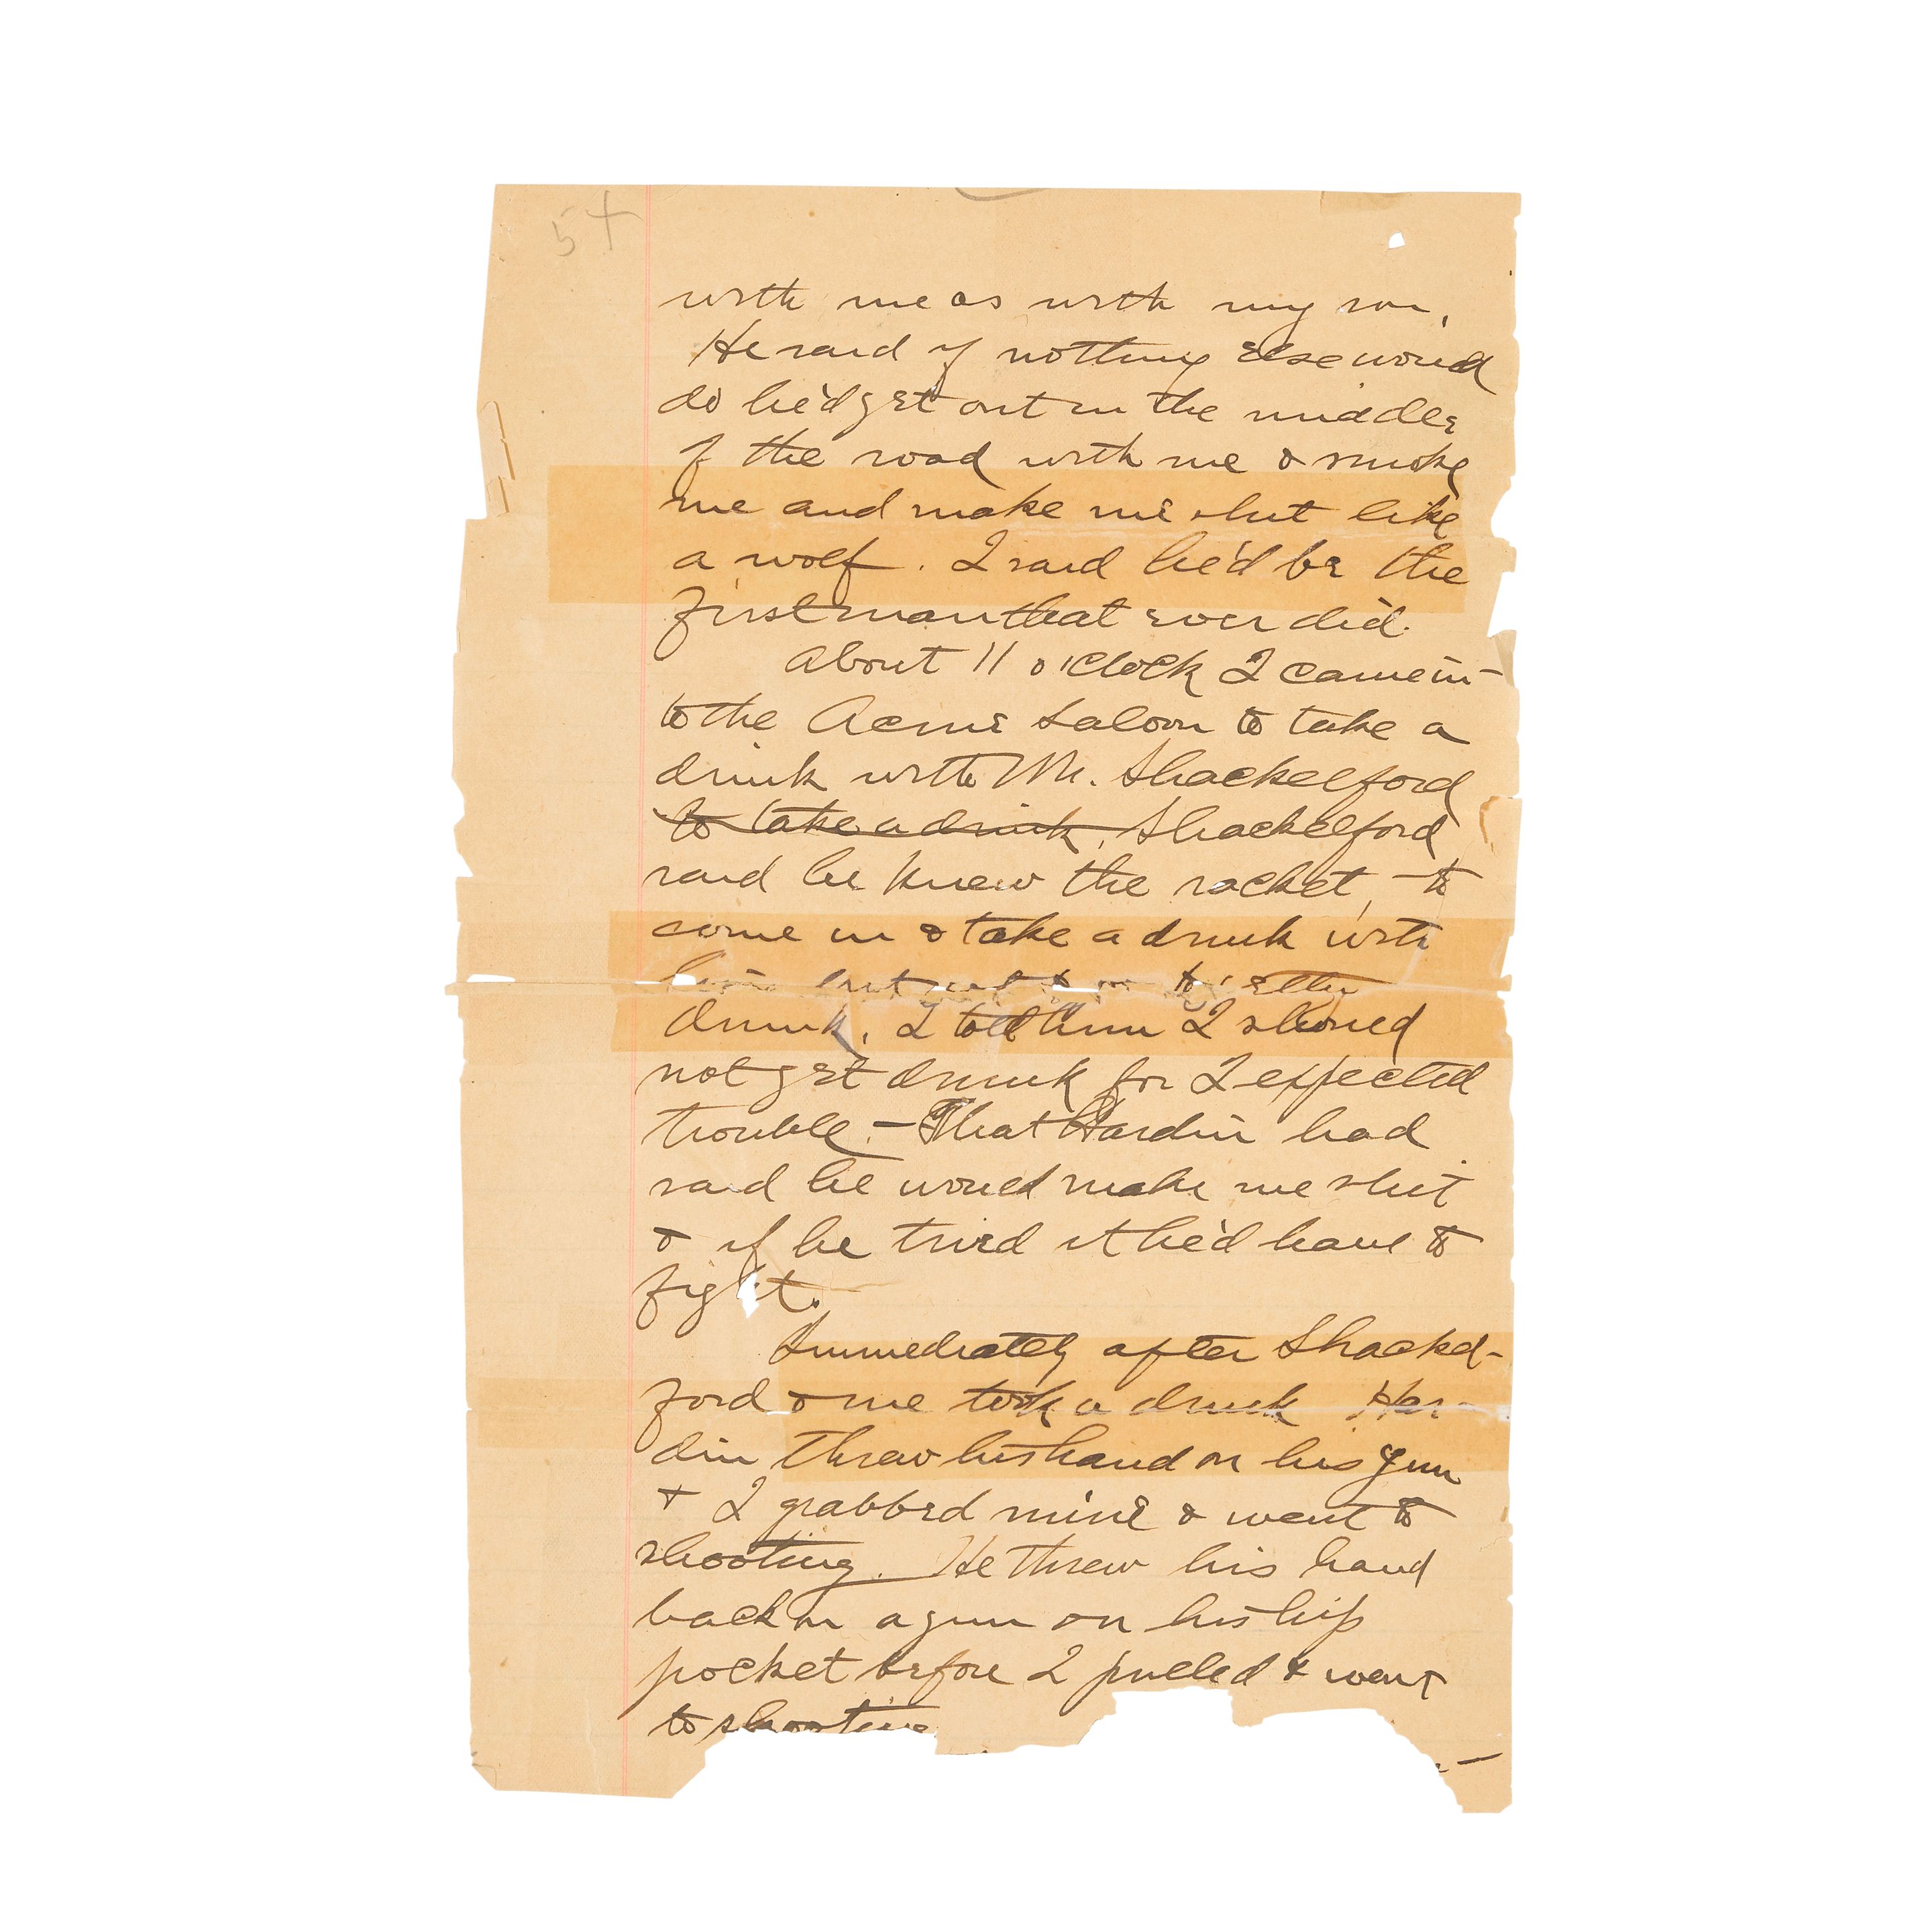 5 +
with me as with my son,
He said if nothing else would
do he'd get out in the middle
of the road with me & smoke
me and make me shit like
a wolf. I said he'd be the
first man that ever did.
About 11 o'clock I came in-
to the Acme Saloon to take a
drink with Mr. Shackelford
to take a drink. Shackelford
said he knew the racket, to
come in & take a drink with
him but not to
drunk. I told him I should
not get drunk for I expected
trouble - That Hardin had
said he would make me shit
& if he tried it he'd have to
fight.
Immediately after Shackel-
ford & me took a drink Har-
din threw his hand on his gun
+ I grabbed mine & went to
shooting. He threw his hand
back on a gun on his hip
pocket before I pulled & went
to shooting